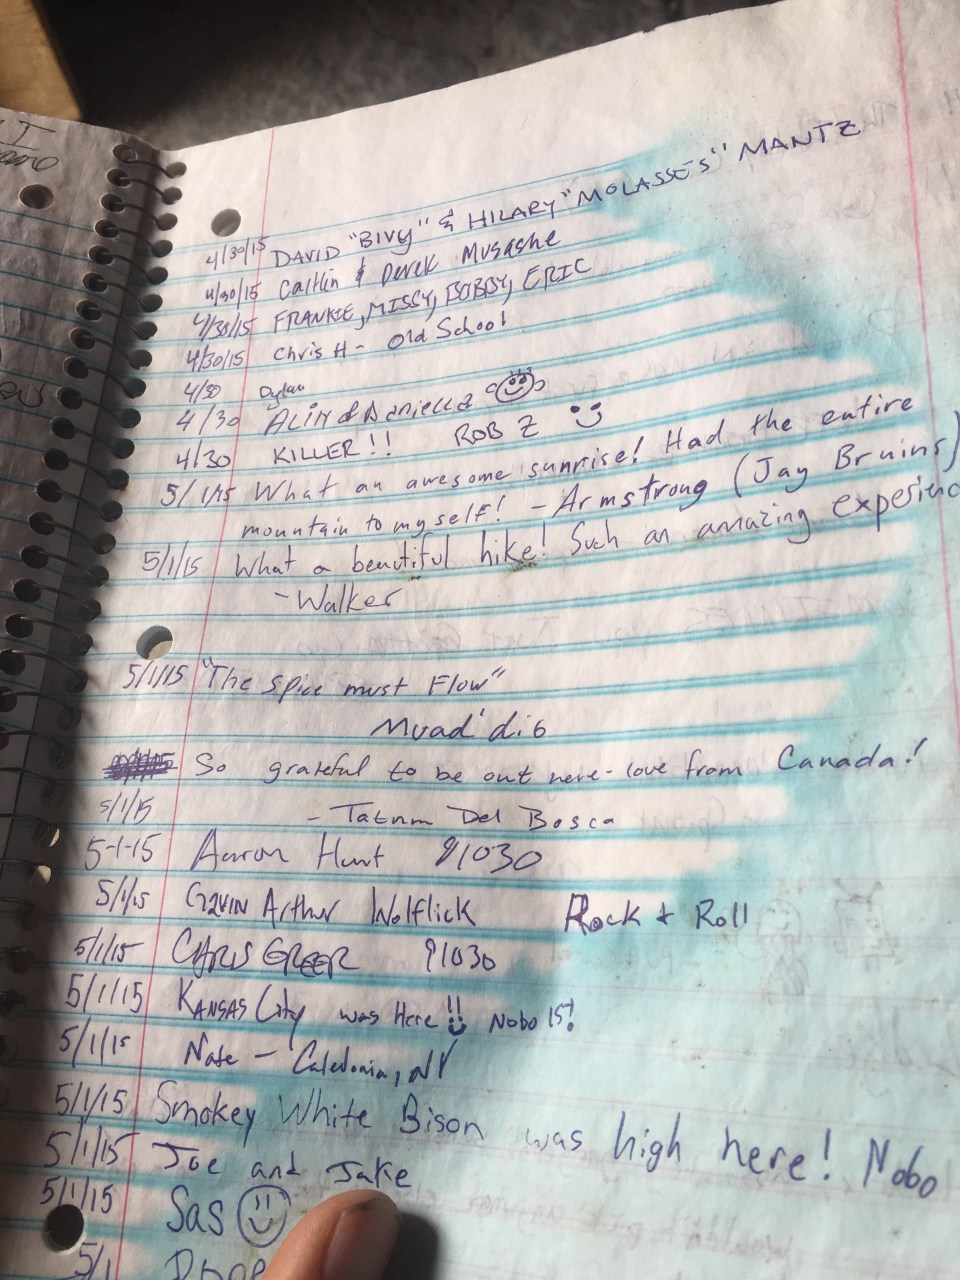 4/30/15 DAVID "BIVY" & HILARY "MOLASSES" MANTZ
4/30/15 Caitlin & Derek Musashe
4/30/15 FRANKIE, MISSY, BOBBY, ERIC
4/30/15 Chris H - Old School
4/30 Dylan
4/30 Daniella
4/30 KILLER!! ROB Z
5/1/15 What an awesome sunrise! Had the entire
mountain to myself! - Armstrong (Jay Bruins)
5/1/15 What a beautiful hike! Such an amazing
- Walker
5/1/15 "The spice must Flow"
Muad'dib
So grateful to be out here - love from Canada!
5/1/15 - Tatum Del Bosca
5-1-15 Aaron Hunt 91030
5/1/15 Gavin Arthur Wolflick Rock & Roll
5/1/15 CHRIS GREER 91030
5/1/15 KANSAS City was Here!! Nobo 15!
5/1/15 Nate - Caledonia, NY
5/1/15 Smokey White Bison was high here! Nobo
5/1/15 Joe and Jake
5/1/15 Sas
5/1